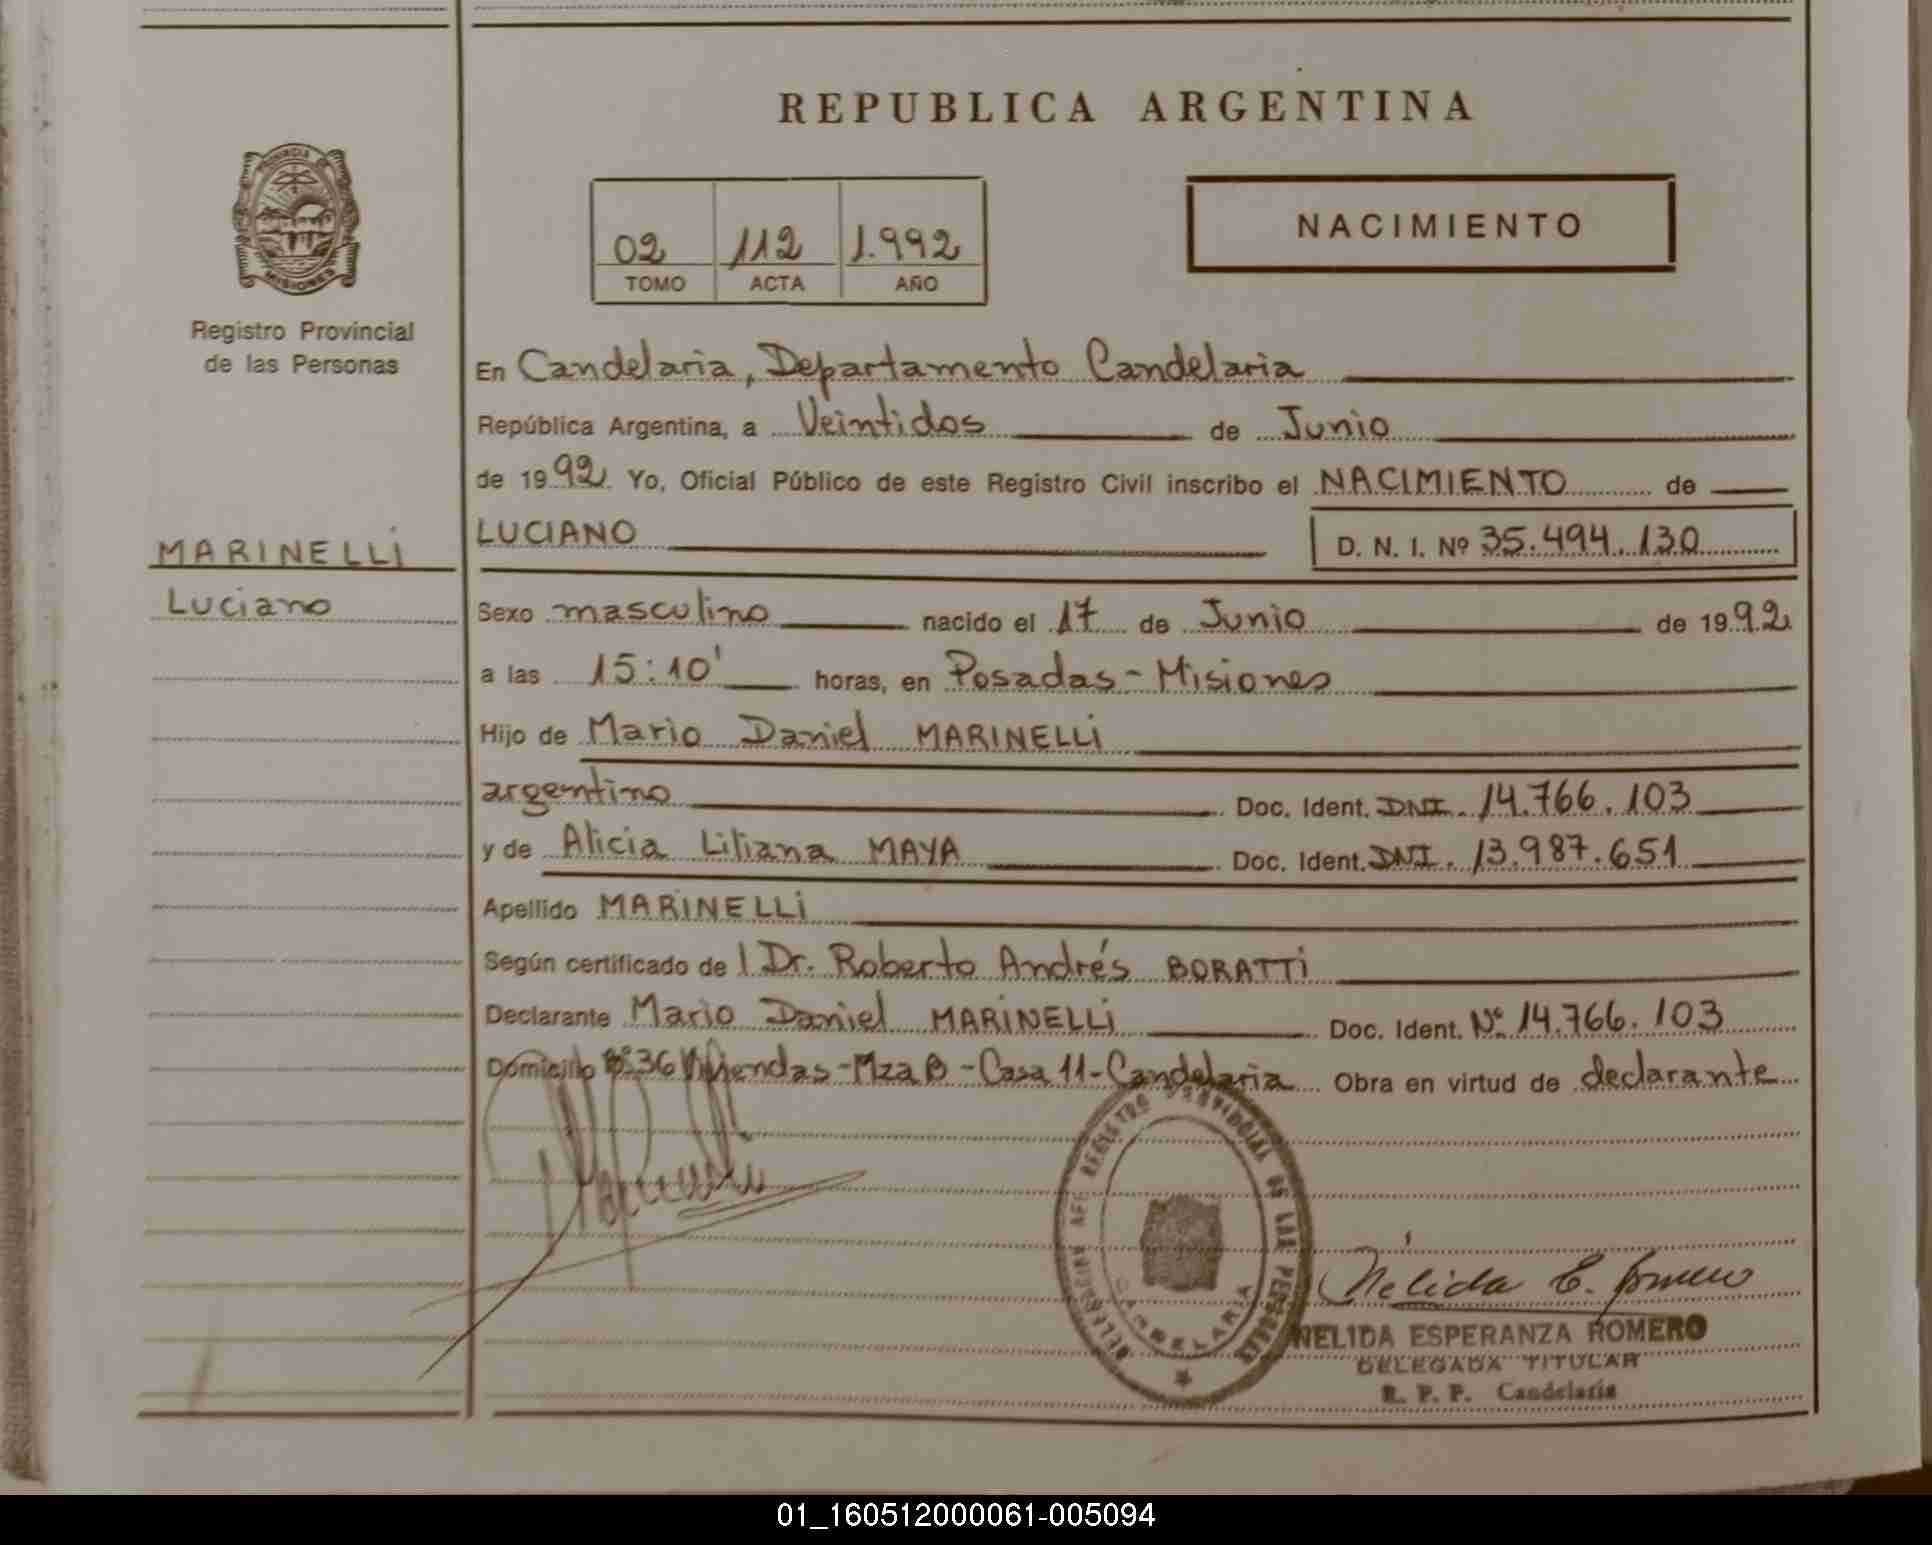 REPUBLICA ARGENTINA
PROVINCIA DE
MISIONES
Registro Provincial
de las Personas
MARINELLI
Luciano
02 112 1.992
TOMO ACTA AÑO
NACIMIENTO
En Candelaria, Departamento Candelaria
República Argentina, a Veintidos de Junio
de 1992. Yo, Oficial Público de este Registro Civil inscribo el NACIMIENTO de
LUCIANO D. N. I. Nº 35.494.130
Sexo masculino nacido el 17 de Junio de 1992
a las 15:10' horas, en Posadas-Misiones
Hijo de Mario Daniel MARINELLI
argentino Doc. Ident. DNI. 14.766.103
y de Alicia Liliana MAYA Doc. Ident. DNI. 13.987.651
Apellido MARINELLI
Según certificado del Dr. Roberto Andrés BORATTI
Declarante Mario Daniel MARINELLI Doc. Ident. Nº 14.766.103
Domicilio Bº 36 Viviendas-Mza B-Casa 11-Candelaria Obra en virtud de declarante
REGISTRO PROVINCIAL DE LAS PERSONAS
CANDELARIA
Nélida E. Romero
NELIDA ESPERANZA ROMERO
DELEGADA TITULAR
R. P. P. Candelaria
01_160512000061-005094